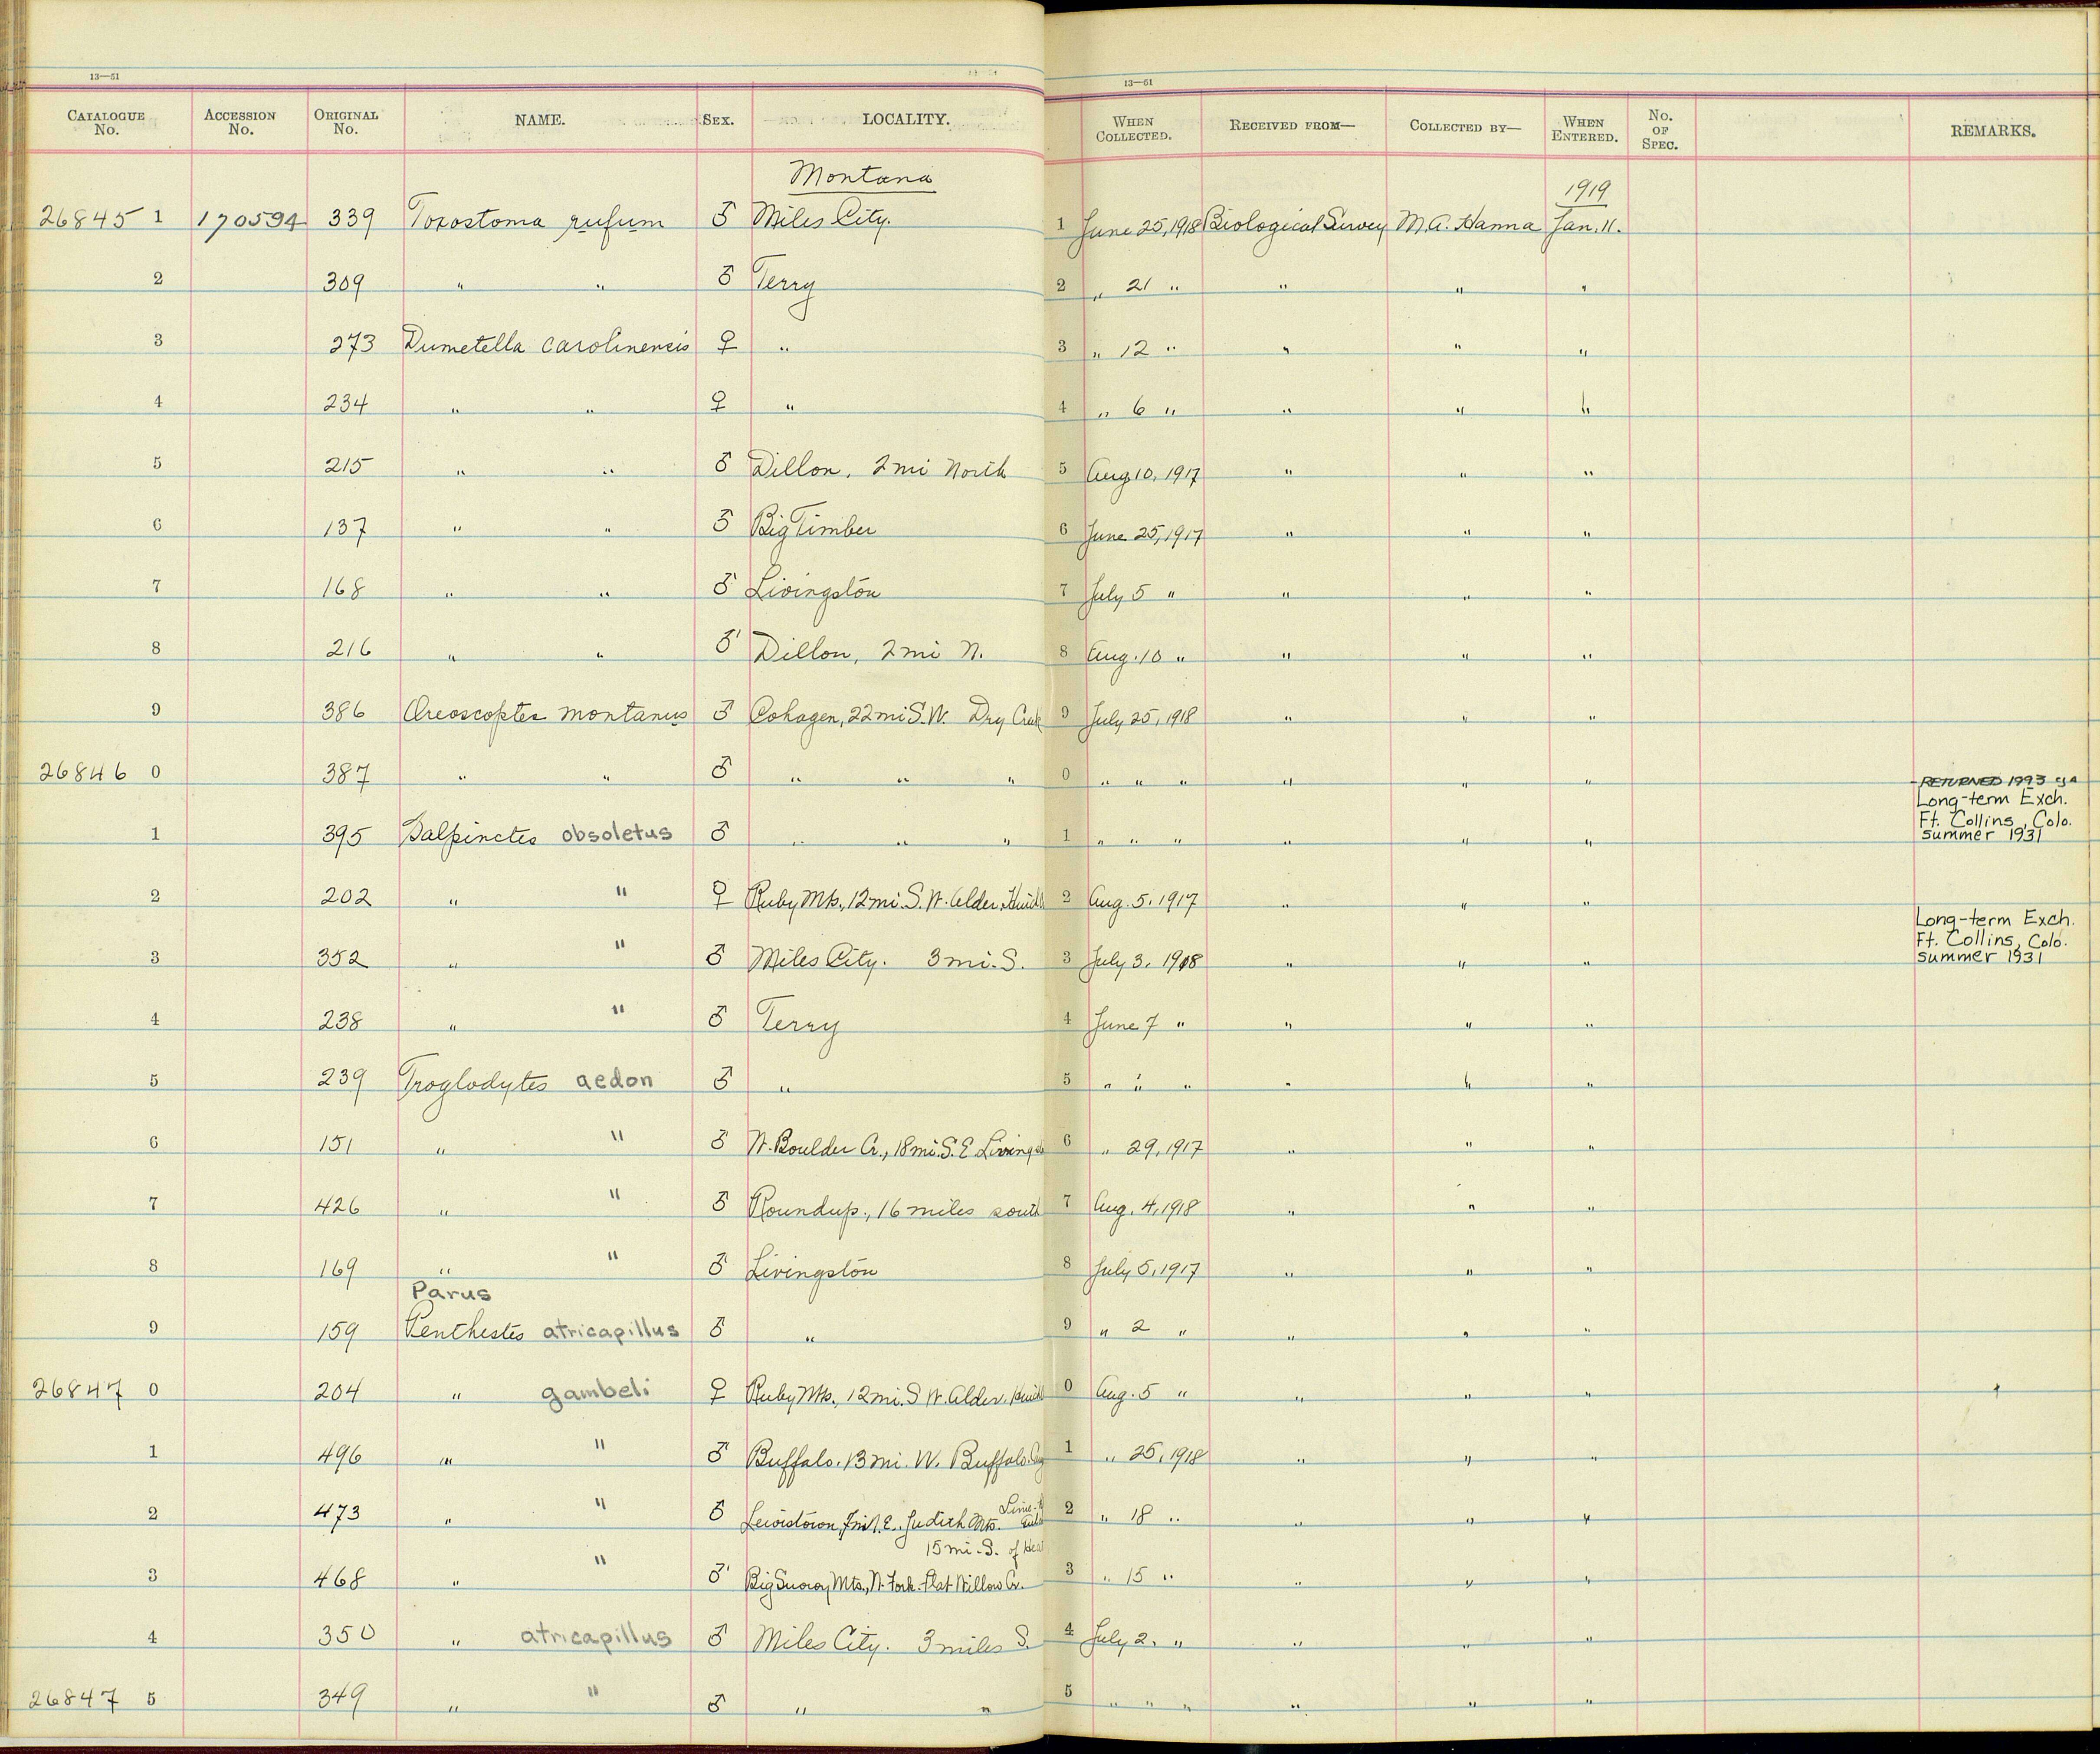 13—51
13—51
CATALOGUE No. ACCESSION No. ORIGINAL No. NAME. SEX. LOCALITY. WHEN COLLECTED. RECEIVED FROM— COLLECTED BY— WHEN ENTERED. No. OF SPEC. REMARKS.
Montana
1919
26845 1 170594 339 Toxostoma rufum ♂ Miles City. 1 June 25, 1918 Biological Survey M.A. Hanna Jan. 11.
2 309 " " ♂ Terry 2 " 21 " " " "
3 273 Dumetella carolinensis ♀ " 3 " 12 " " " "
4 234 " " ♀ " 4 " 6 " " " "
5 215 " " ♂ Dillon, 2 mi North 5 Aug 10, 1917 " " "
6 137 " " ♂ Big Timber 6 June 25, 1917 " " "
7 168 " " ♂ Livingston 7 July 5 " " " "
8 216 " " ♂ Dillon, 2 mi N. 8 Aug. 10 " " " "
9 386 Oreoscoptes montanus ♂ Cohagen, 22 mi S.W. Dry Creek 9 July 25, 1918 " " "
26846 0 387 " " ♂ " " " 0 " " " " " " RETURNED 1993
Long-term Exch.
Ft. Collins, Colo.
1 395 Salpinctes obsoletus ♂ " " " 1 " " " " " " summer 1931
2 202 " " ♀ Ruby Mts., 12 mi. S.W. Alder, 2 Aug. 5, 1917 " " "
Long-term Exch.
Ft. Collins, Colo.
3 352 " " ♂ Miles City. 3 mi. S. 3 July 3, 1918 " " " summer 1931
4 238 " " ♂ Terry 4 June 7 " " " "
5 239 Troglodytes aedon ♂ " 5 " " " " " "
6 151 " " ♂ W. Boulder Cr., 18 mi. S.E. 6 " 29, 1917 " " "
7 426 " " ♂ Roundup, 16 miles south 7 Aug. 4, 1918 " " "
8 169 " " ♂ Livingston 8 July 5, 1917 " " "
Parus
9 159 Penthestes atricapillus ♂ " 9 " 2 " " " "
26847 0 204 " gambeli ♀ Ruby Mts., 12 mi. S.W. Alder, 0 Aug. 5 " " " "
1 496 " " ♂ Buffalo. 13 mi. W. Buffalo 1 " 25, 1918 " " "
2 473 " " ♂ Lewistown, N.E. Judith Mts. 2 " 18 " " " "
15 mi. S. of
3 468 " " ♂ Big Snowy Mts., N. Fork. Flat Willow Cr. 3 " 15 " " " "
4 350 " atricapillus ♂ Miles City. 3 miles S. 4 July 2. " " " "
26847 5 349 " " ♂ " " 5 " " " " " "